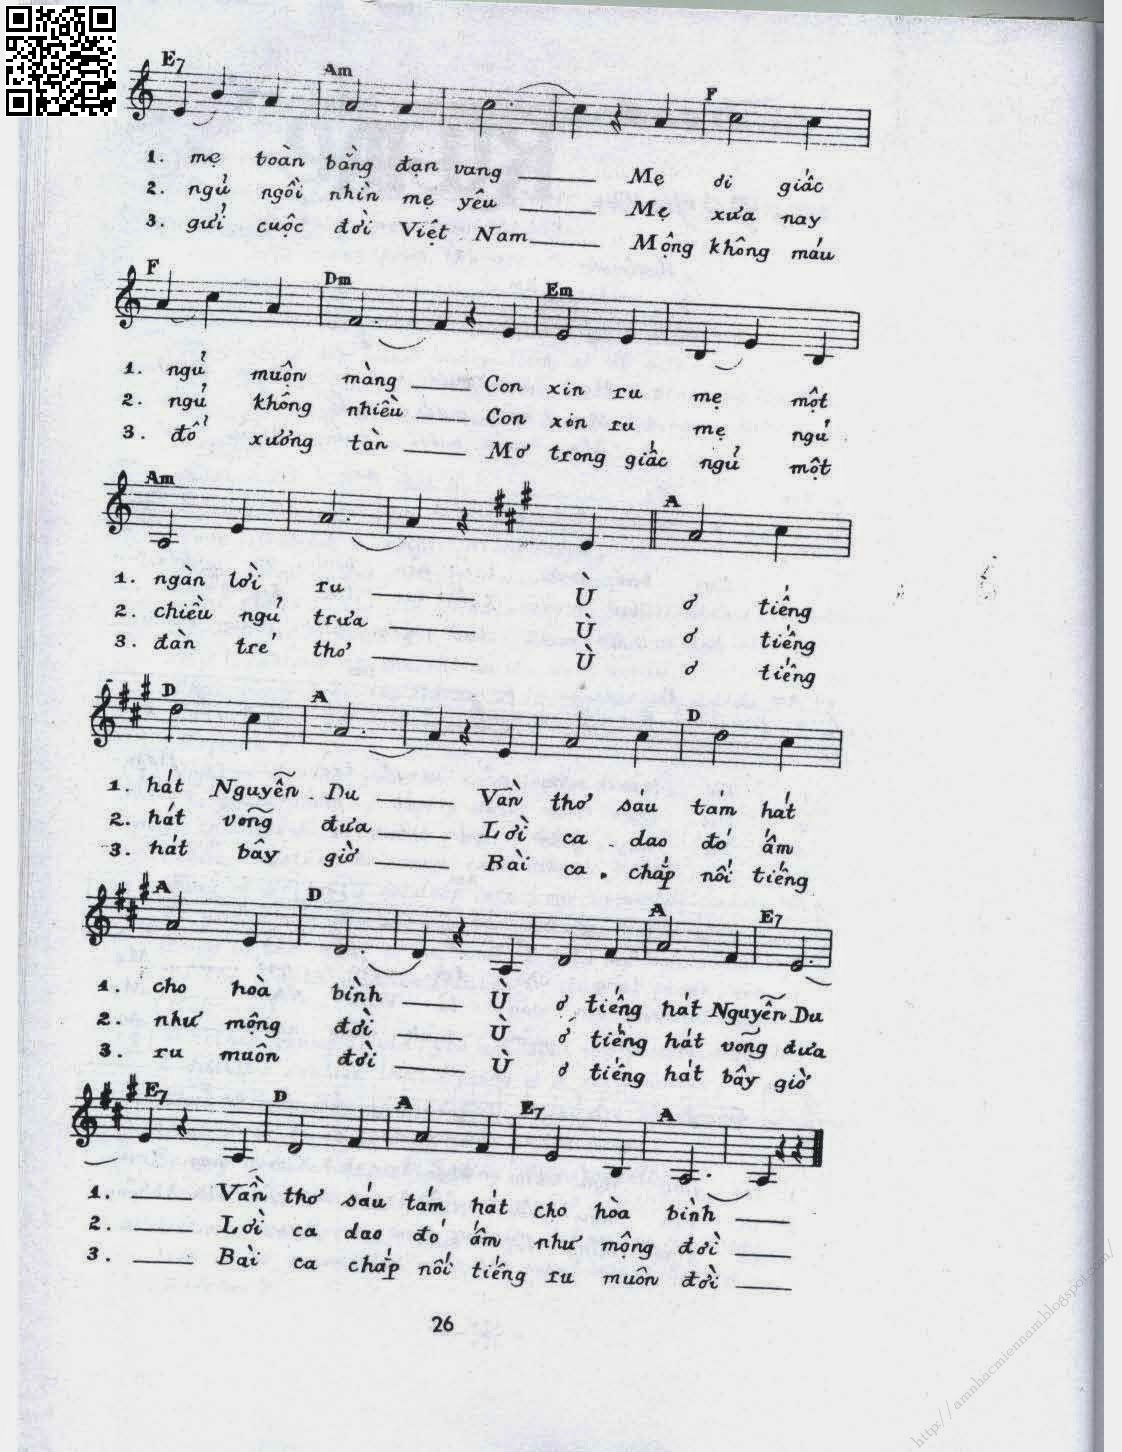 E7 Am F
1. mẹ toàn bằng đạn vang ___ Mẹ ơi giấc
2. ngủ ngồi nhìn mẹ yêu ___ Mẹ xưa nay
3. gửi cuộc đời Việt Nam ___ Mộng không máu
F Dm Em
1. ngủ muộn màng ___ Con xin ru mẹ một
2. ngủ không nhiều ___ Con xin ru mẹ ngủ
3. đổ xương tàn ___ Mơ trong giấc ngủ một
Am A
1. ngàn lời ru ___ Ù ơ tiếng
2. chiều ngủ trưa ___ Ù ơ tiếng
3. đàn trẻ thơ ___ Ù ơ tiếng
D A D
1. hát Nguyễn Du ___ Vần thơ sáu tám hát
2. hát võng đưa ___ Lời ca dao đó ấm
3. hát bây giờ ___ Bài ca chắp nối tiếng
A D A E7
1. cho hoà bình ___ Ù ơ tiếng hát Nguyễn Du
2. như mộng đời ___ Ù ơ tiếng hát võng đưa
3. ru muôn đời ___ Ù ơ tiếng hát bây giờ
E7 D A E7 A
1. ___ Vần thơ sáu tám hát cho hòa bình ___
2. ___ Lời ca dao đó ấm như mộng đời ___
3. ___ Bài ca chắp nối tiếng ru muôn đời ___
26
http://amnhacmiennam.blogspot.com/